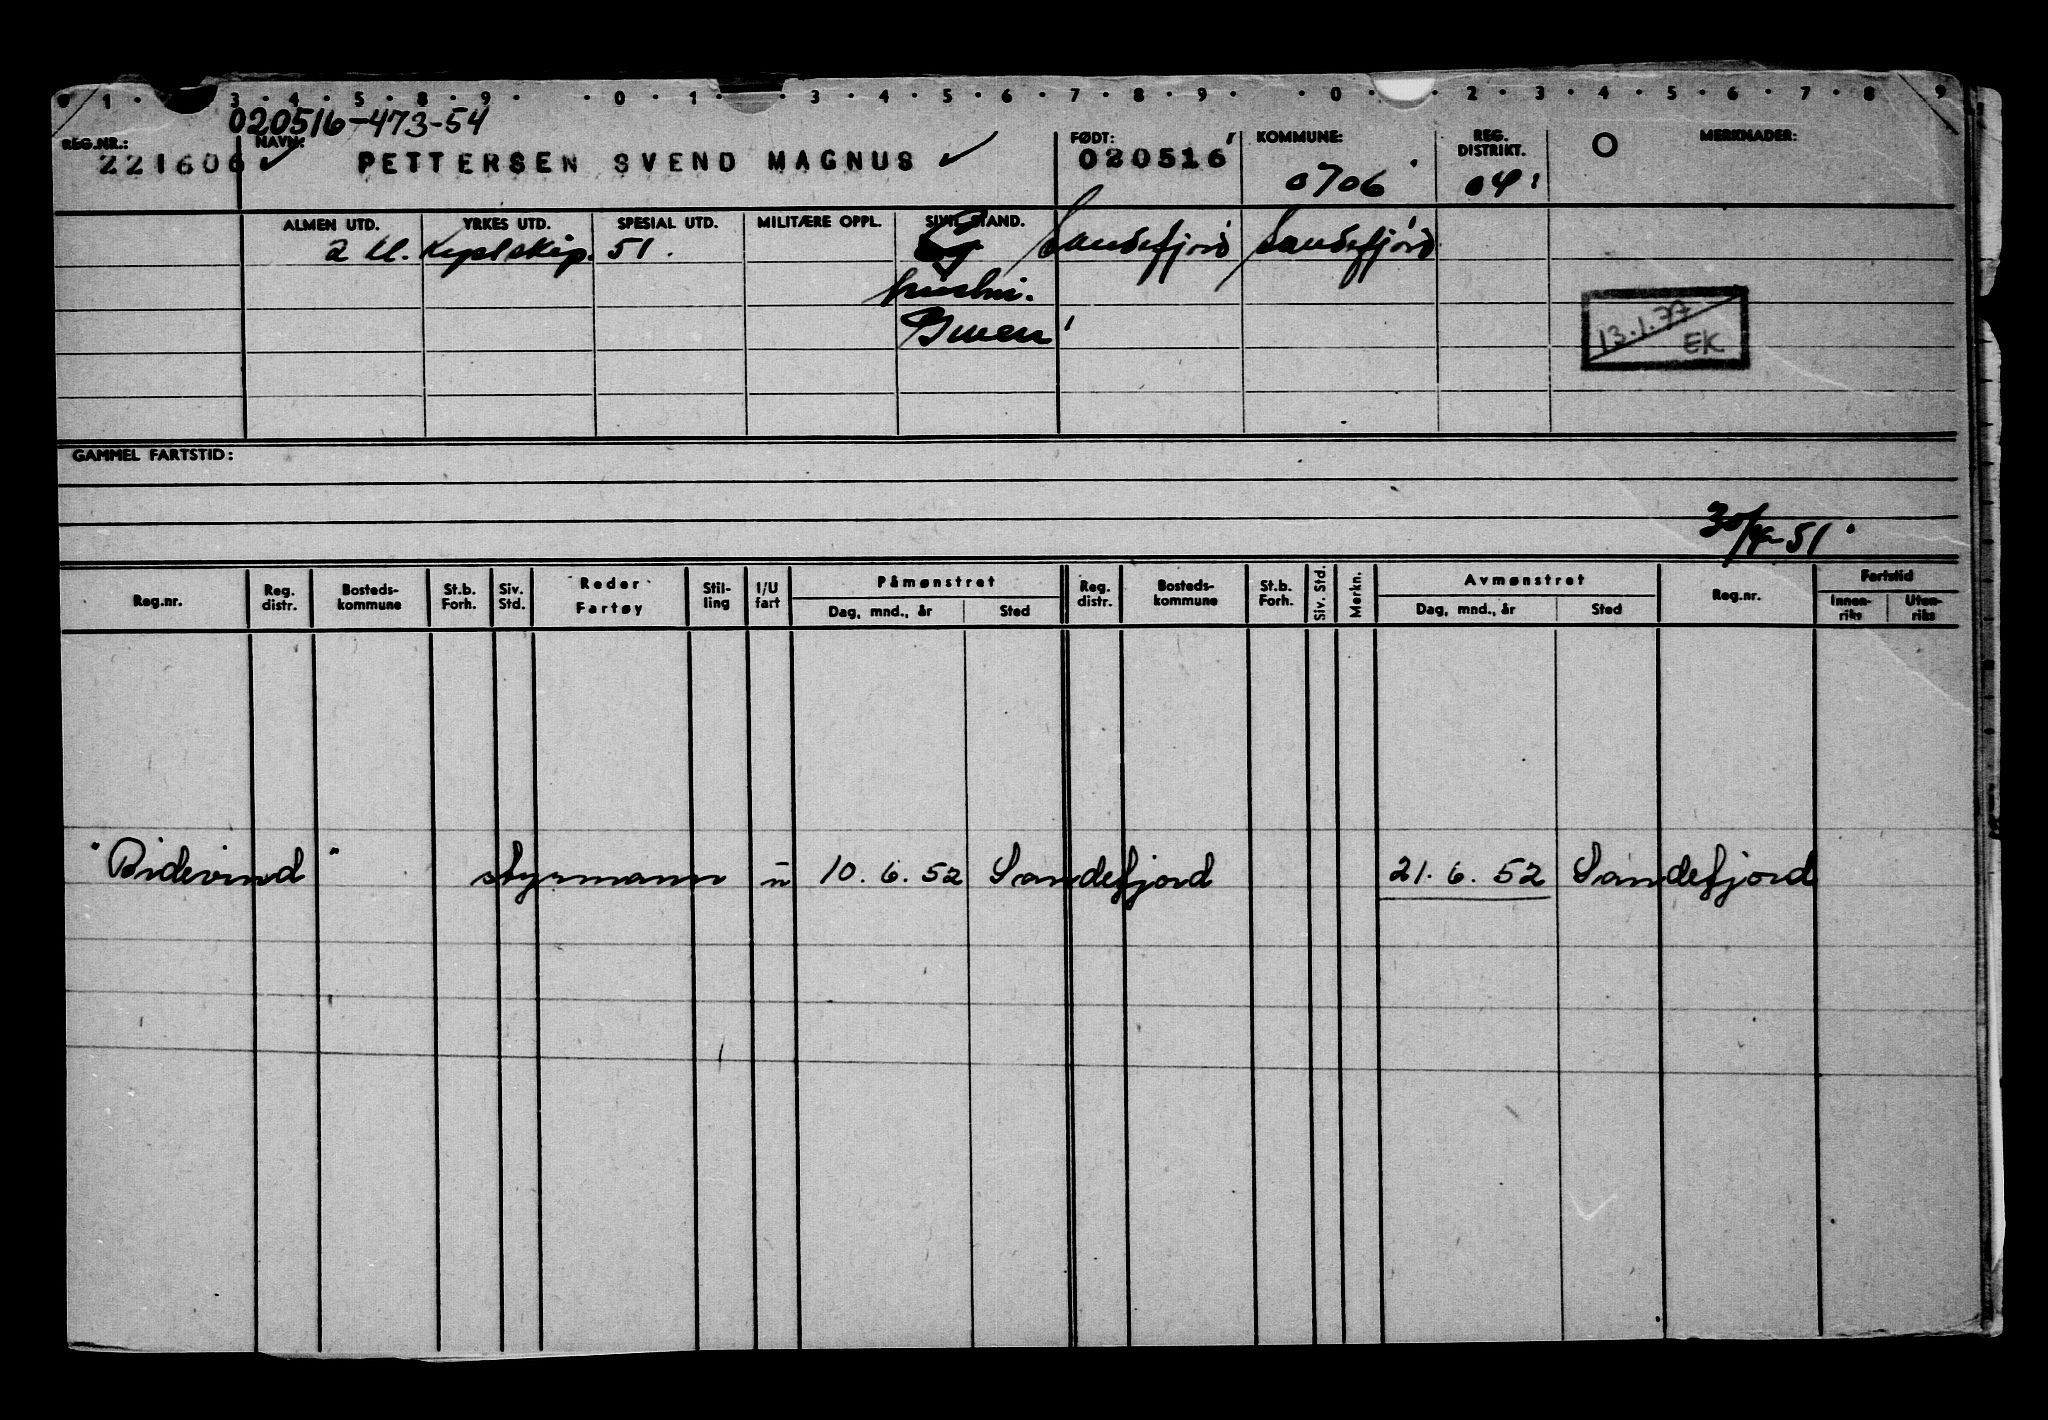 1 · 3 · 4 · 5 · 8 · 9 · · 0 · 1 · 3 · 4 · 5 · 6 · 7 · 8 · 9 · · 0 · 2 · 3 · 4 · 5 · 6 · 7 · 8 9
020516-473-54
REG.NR.: NAVN: FØDT: KOMMUNE: REG. DISTRIKT. MERKNADER:
221606 PETTERSEN SVEND MAGNUS 020516 0706 04
ALMEN UTD. YRKES UTD. SPESIAL UTD. MILITÆRE OPPL. SIVIL STAND.
2 kl. 51. Sandefjord Sandefjord
13.1.77
EK
GAMMEL FARTSTID:
51
Reg.nr. Reg. distr. Bosteds-kommune St.b. Forh. Siv. Std. Reder Fartøy Stil-ling I/U fart Påmønstret Reg. distr. Bosteds-kommune St.b. Forh. Siv. Std. Merkn. Avmønstret Reg.nr. Fartstid
Dag, mnd., år Sted Dag, mnd., år Sted Innen-riks Uten-riks
"Bidevind" styrmann u 10.6.52 Sandefjord 21.6.52 Sandefjord